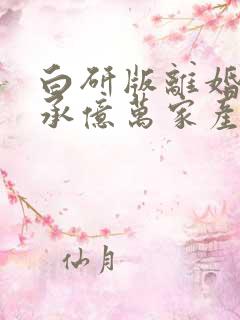 白研版離婚
承億萬家產
仙月